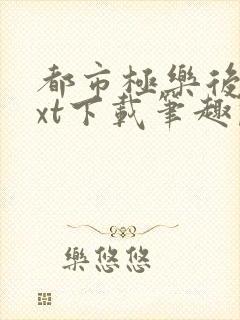 都市極樂後
xt下載筆趣
樂悠悠